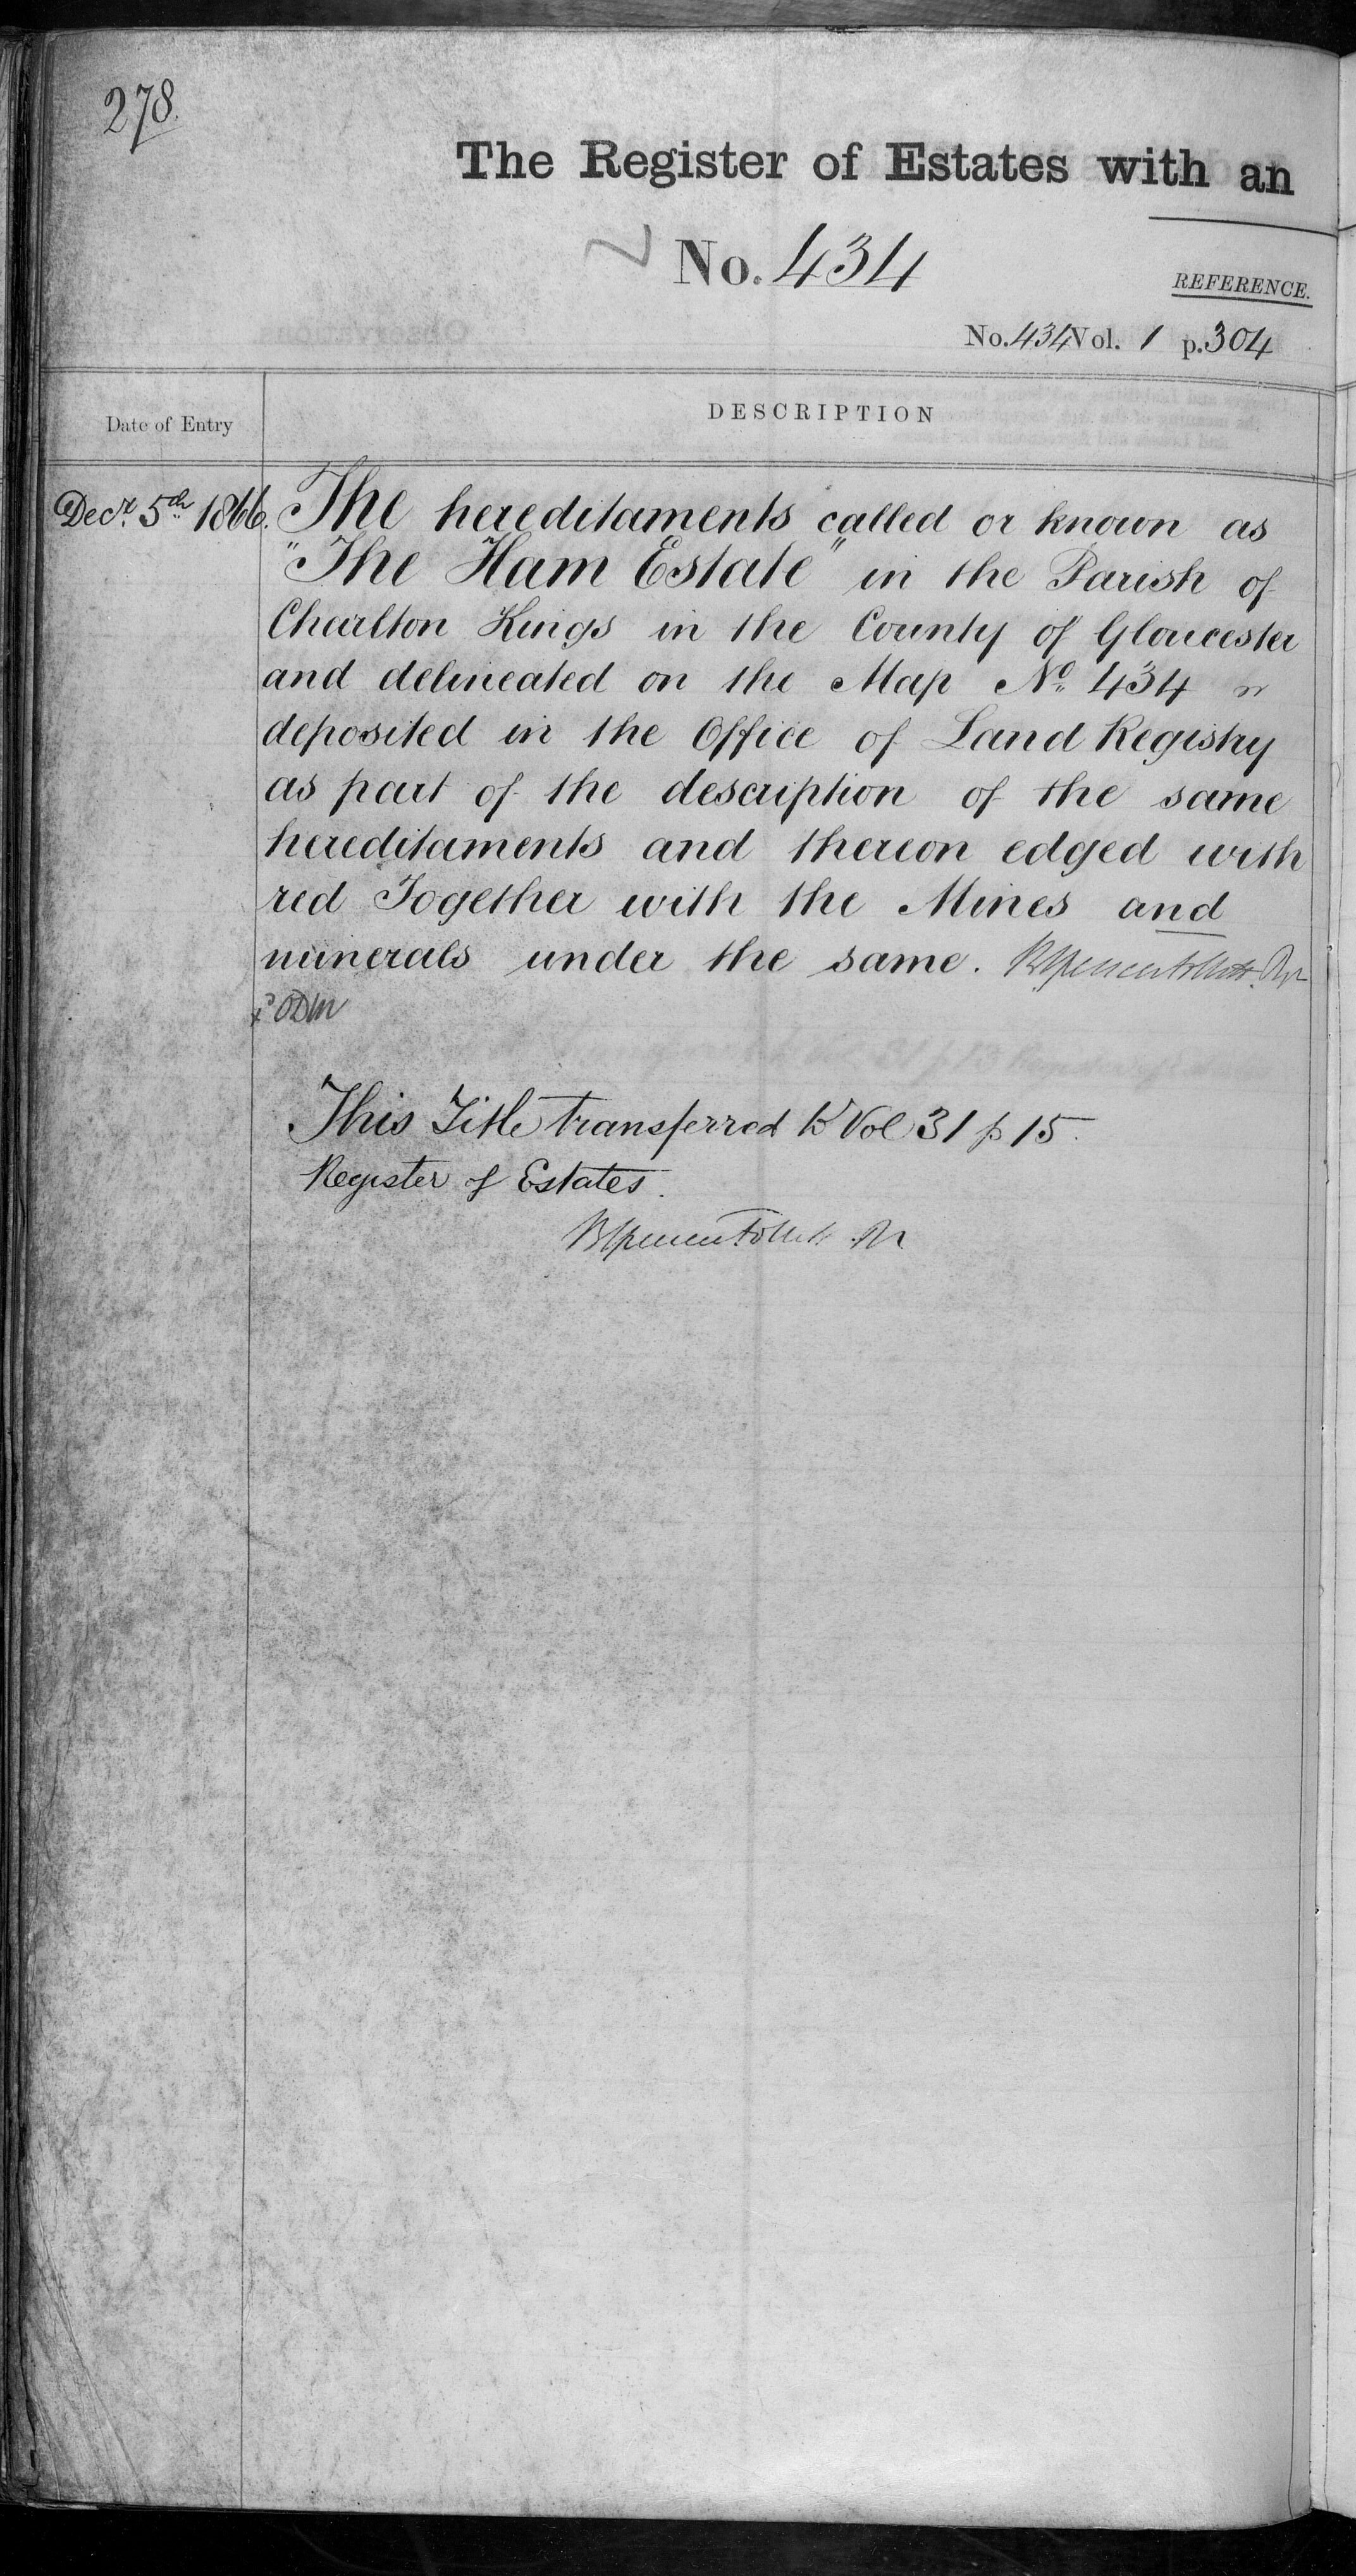 278.
The Register of Estates with an
No. 434
REFERENCE.
No. 434 Vol. 1 p. 304
Date of Entry
DESCRIPTION
Decr. 5th 1866. The hereditaments called or known as
"The Ham Estate" in the Parish of
Charlton Kings in the County of Gloucester
and delineated on the Map No. 434
deposited in the Office of Land Registry
as part of the description of the same
hereditaments and thereon edged with
red Together with the Mines and
minerals under the same.
This Title transferred to Vol 31 p 15.
Register of Estates.